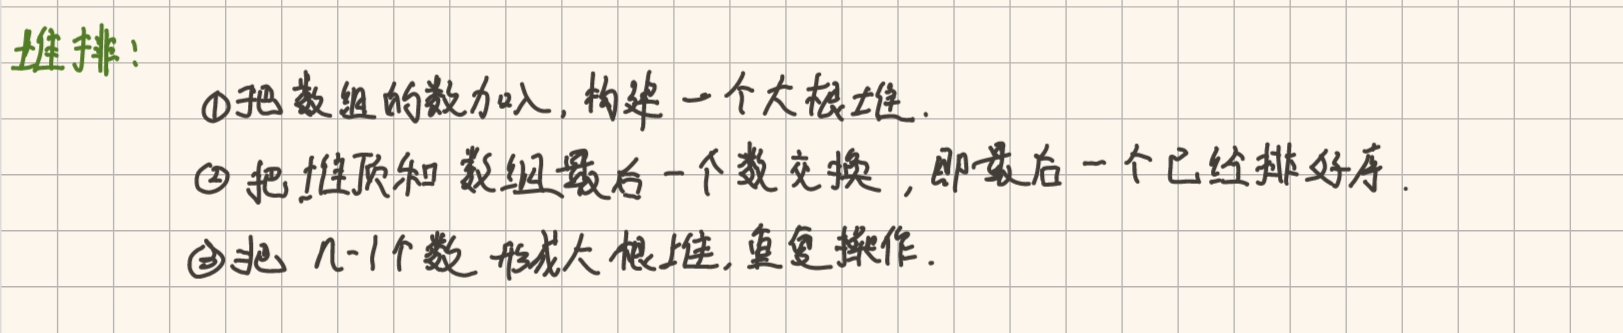 堆排:
①把数组的数加入,构建一个大根堆.
②把堆顶和数组最后一个数交换,即最后一个已经排好序.
③把n-1个数形成大根堆,重复操作.